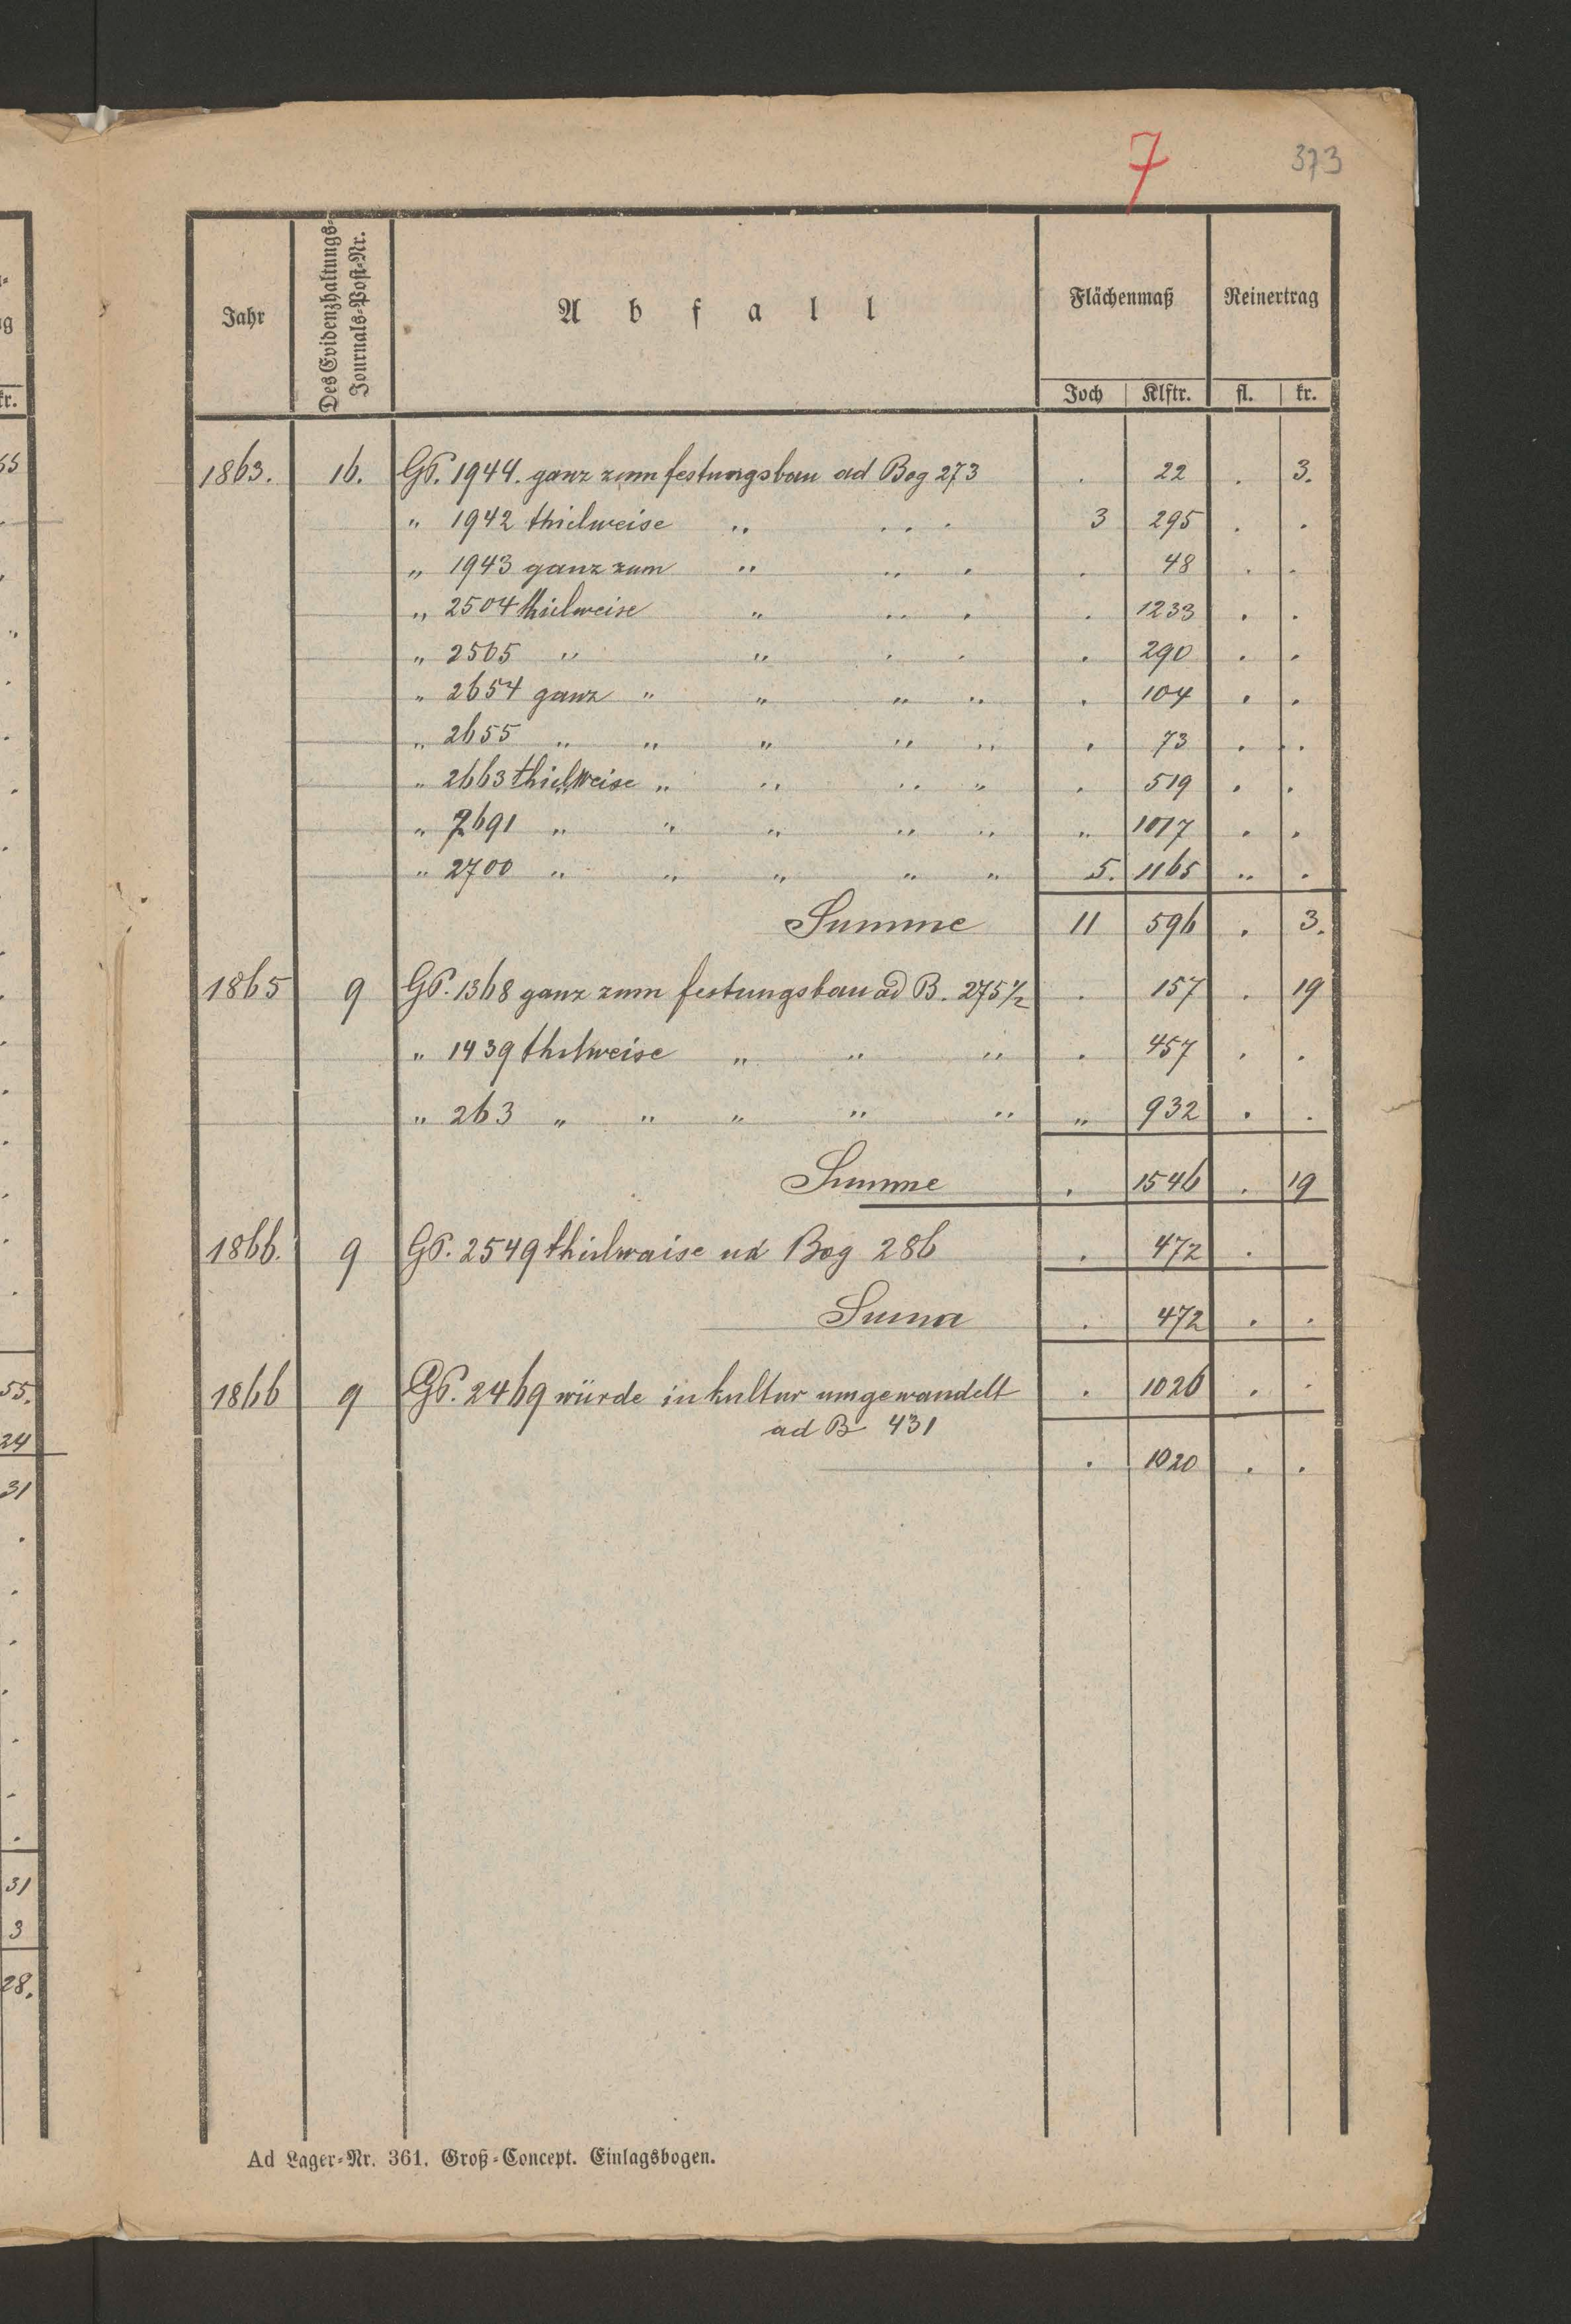 7 373
Jahr
Des Evidenzhaltungs-
Journals-Post-Nr.
Abfall
Flächenmaß Reinertrag
Joch Klftr. fl. kr.
1863. 16. GP. 1944. ganz zum festungsbau ad Bog 273 . 22 . 3.
" 1942 thielweise " . . . 3 295 . .
" 1943 ganz zum " " . . 48 . .
" 2504 thielweise " " . . 1233 . .
" 2505 " " . . . 290 . .
" 2654 ganz " " " " . 104 . .
" 2655 " " " " " . 73 . .
" 2663 thielweise " " " " . 519 . .
" 2691 " " " " " " 1017 . .
" 2700 " " " " " 5. 1165 " .
Summe 11 596 . 3.
1865 9 GP. 1368 ganz zum festungsbau ad B. 275½ . 157 . 19
" 1439 thilweise " " " . 457 . .
" 263 " " " " " " 932 . .
Summe . 1546 . 19
1866. 9 GP. 2549 thielwaise ud Bog 286 . 472 .
Suma . 472 . .
1866 9 GP. 2469 würde in kultur umgewandelt . 1026 . .
ad B 431
. 1020 . .
Ad Lager-Nr. 361. Groß-Concept. Einlagsbogen.
g
kr.
55
55.
24
31
31
3
28.